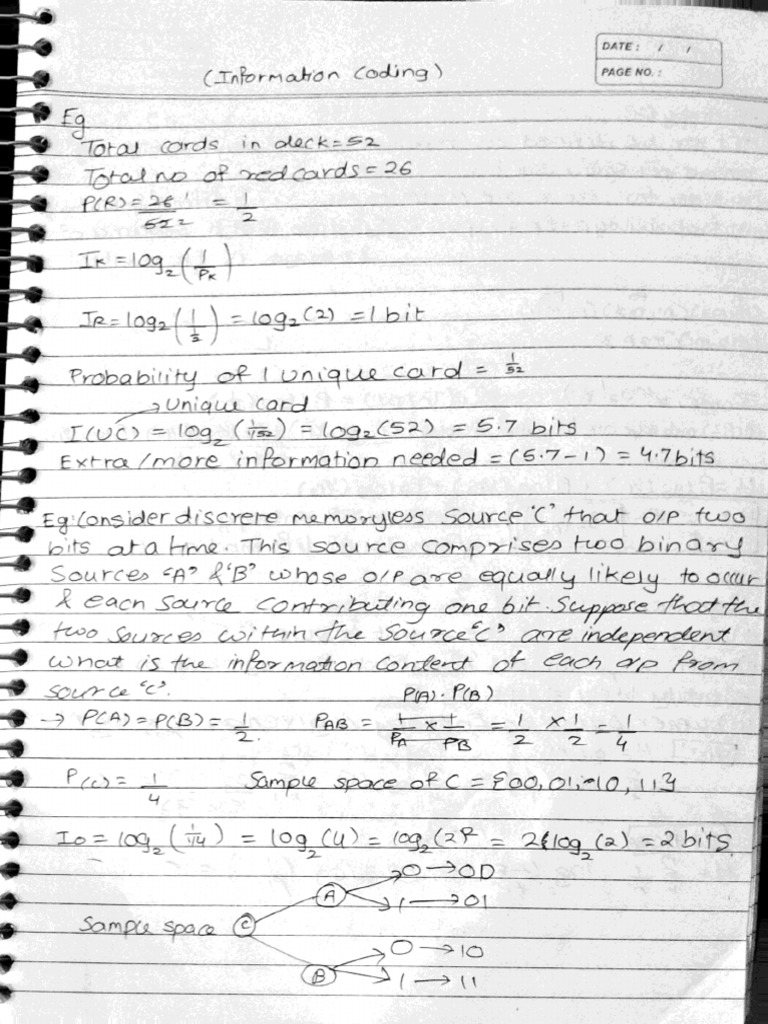 DATE: / /
PAGE NO.:
(Information Coding)
Eg
Total cards in deck = 52
Total no of red cards = 26
P(R) = 26 1 / 52 2 = 1/2
IK = log2 (1/PK)
IR = log2 (1/ 1/2) = log2 (2) = 1 bit
Probability of 1 unique card = 1/52
→ Unique card
I(UC) = log2 (1/ 1/52) = log2 (52) = 5.7 bits
Extra/more information needed = (5.7-1) = 4.7 bits
Eg: Consider discrete memoryless source 'C' that o/p two
bits at a time. This source comprises two binary
Sources 'A' & 'B' whose o/p are equally likely to occur
& each source contributing one bit. Suppose that the
two sources within the source 'C' are independent
what is the information content of each o/p from
source 'C'.
P(A) . P(B)
→ P(A) = P(B) = 1/2. PAB = 1/PA x 1/PB = 1/2 x 1/2 = 1/4
P(C) = 1/4 Sample space of C = {00, 01, 10, 11}
I0 = log2 (1/ 1/4) = log2 (4) = log2 (2)2 = 2 log2 (2) = 2 bits.
0 → 00
A
1 → 01
Sample space C
0 → 10
B
1 → 11